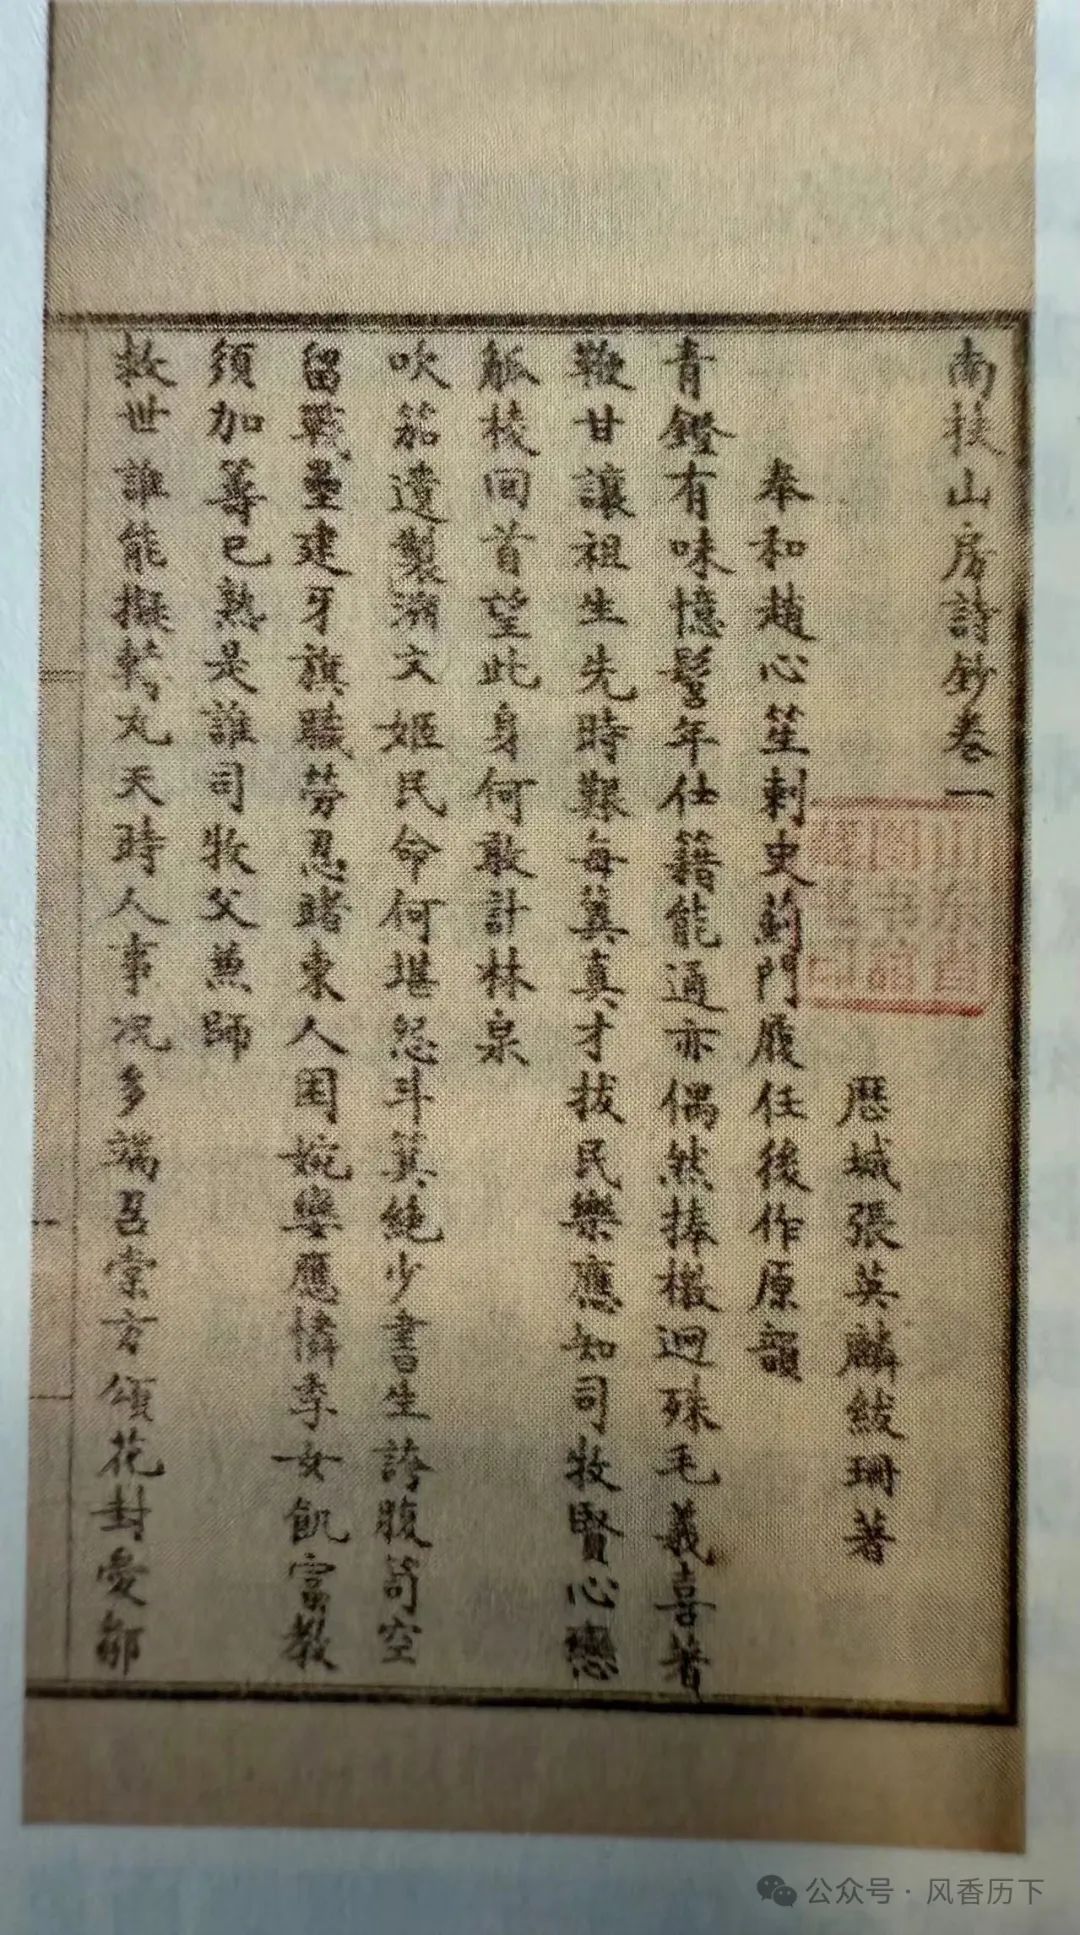 南扶山房詩鈔卷一
歷城張英麟紱珊著
奉和趙心笙刺史薊門履任後作原韻
青鐙有味憶髫年仕籍能通亦偶然捧檄迥殊毛義喜著
鞭甘讓祖生先時艱每冀真才拔民樂應知司牧賢心戀
觚棱回首望此身何敢計林泉
吹笳遺製溯文姬民命何堪忽斗箕絕少書生誇腹笥空
留戰壘建牙旗職勞忍睹東人困婉孌應憐季女飢富教
須加籌已熟是誰司牧父兼師
救世誰能擬
丸天時人事況多端召棠方頌花封愛鄒
山东省图书馆
公众号·风香历下